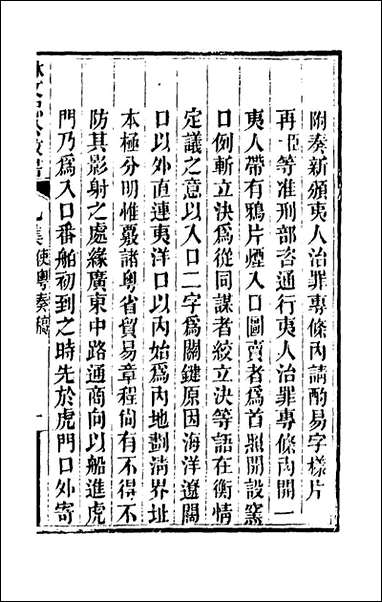 附奏新頒夷人治罪專條內請酌易字樣片
再臣等准刑部咨通行夷人治罪專條內開一
夷人帶有鴉片煙入口圖賣者爲首照開設窰
口例斬立決爲從同謀者絞立決等語在衡情
定議之意以入口二字爲關鍵原因海洋遼闊
口以外直連夷洋口以內始爲內地劃清界址
本極分明惟覈諸粵省貿易章程尙有不得不
防其影射之處緣廣東中路通商向以船進虎
門乃爲入口番舶初到之時先於虎門口外寄
林文忠公政書
乙集使粵奏稿
一